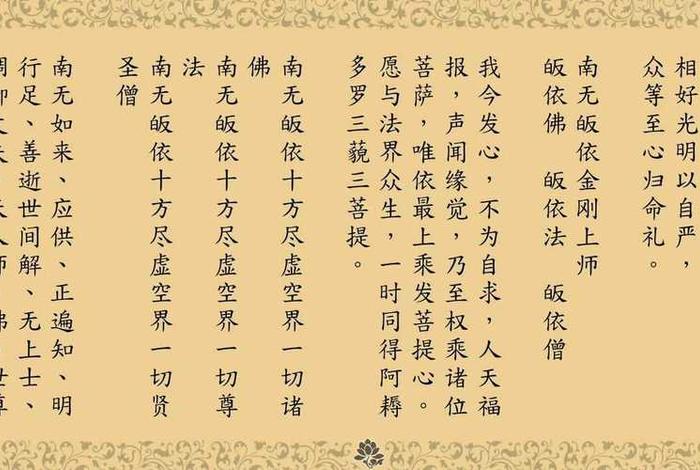 相好光明以自严，
众等至心归命礼。
南无皈依金刚上师
皈依佛 皈依法 皈依僧
我今发心，不为自求，人天福
报，声闻缘觉，乃至权乘诸位
菩萨，唯依最上乘发菩提心。
愿与法界众生，一时同得阿耨
多罗三藐三菩提。
南无皈依十方尽虚空界一切诸
佛
南无皈依十方尽虚空界一切尊
法
南无皈依十方尽虚空界一切贤
圣僧
南无如来、应供、正遍知、明
行足、善逝世间解、无上士、
调御丈夫、天人师、佛、世尊